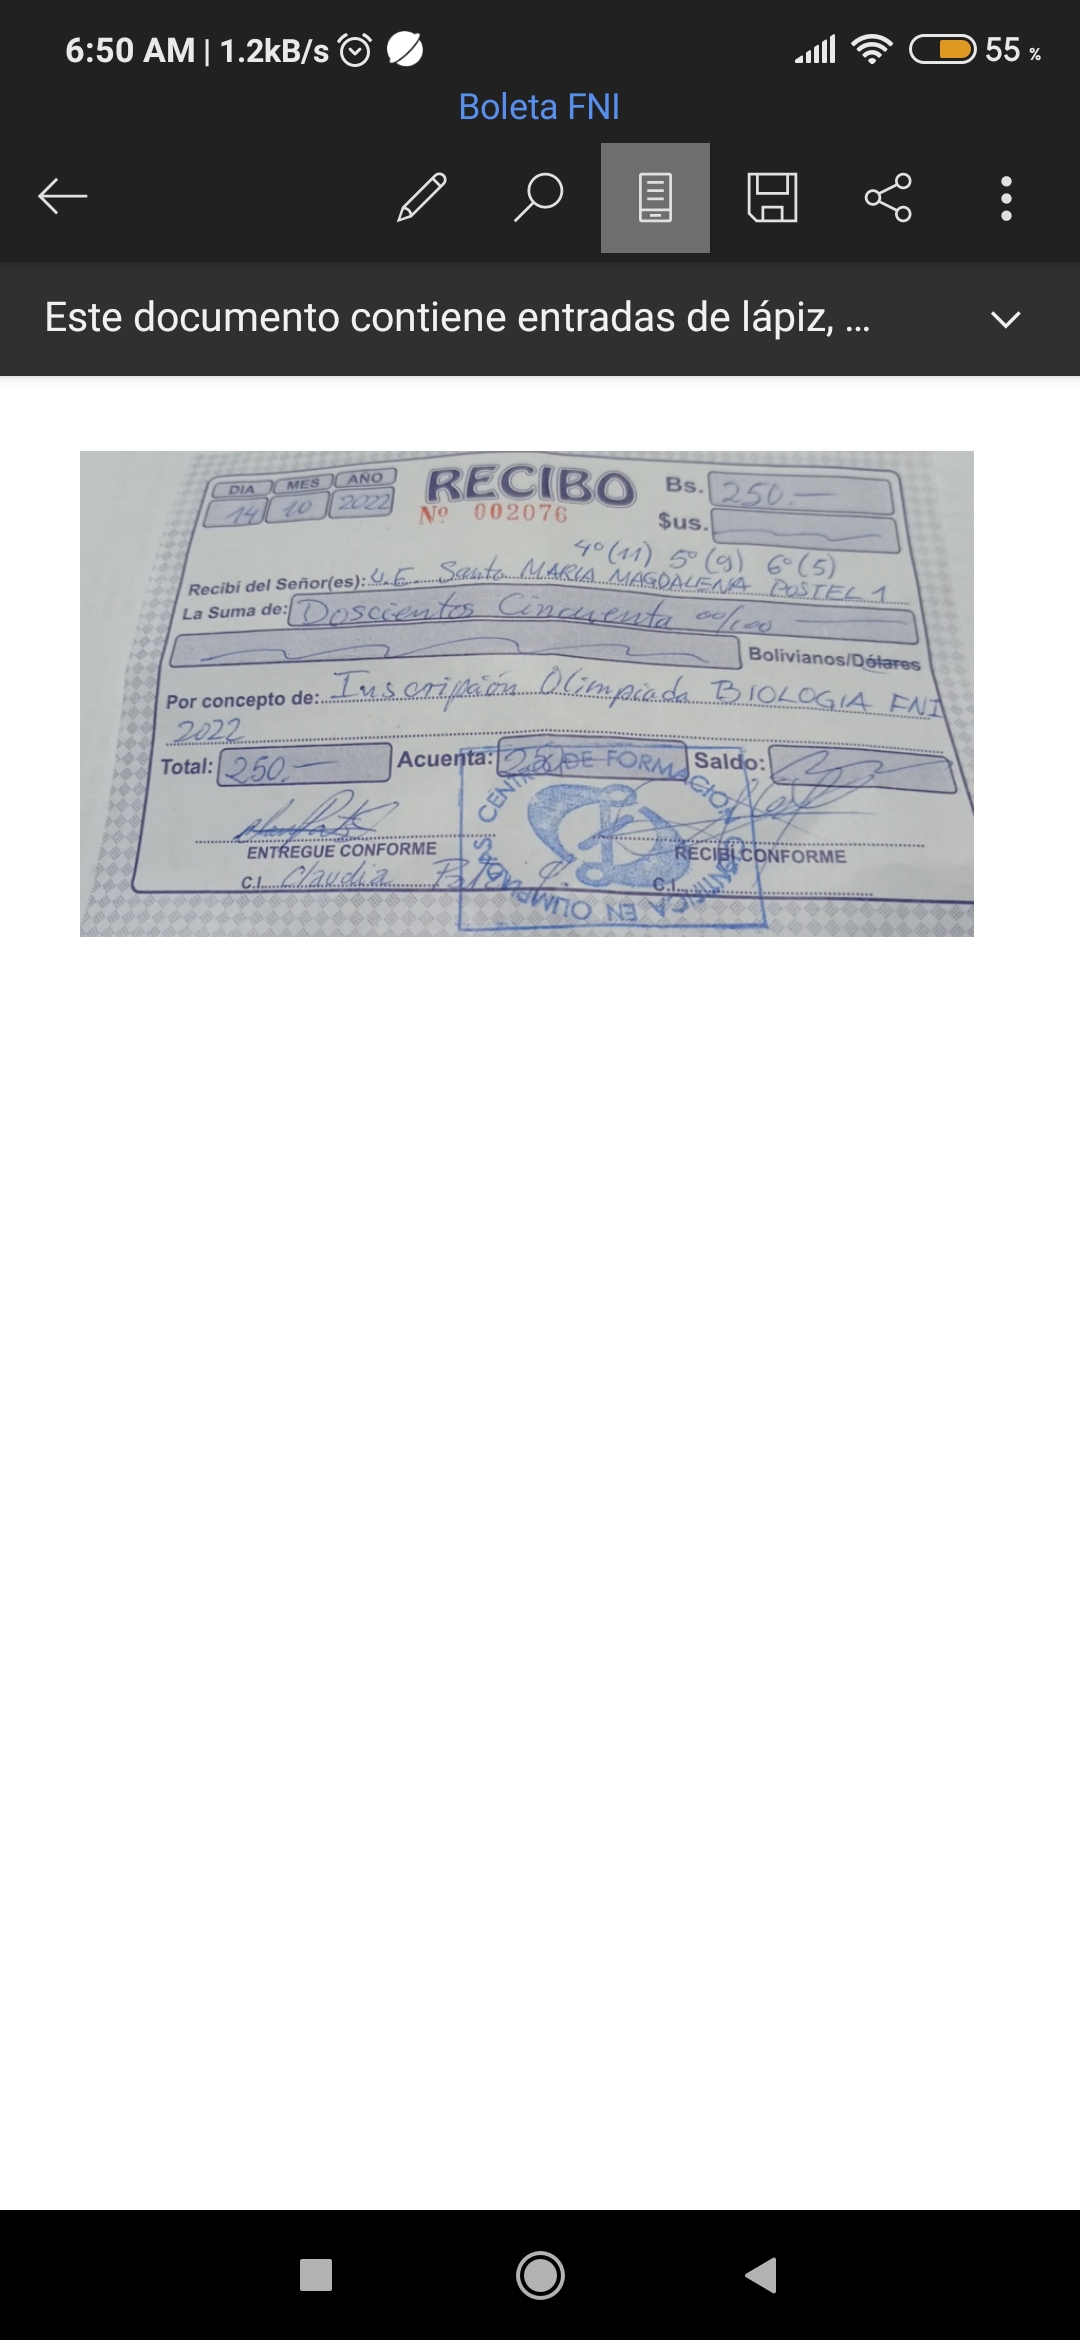 6:50 AM | 1.2kB/s 55 %
Boleta FNI
Este documento contiene entradas de lápiz, ...
DIA MES AÑO
14 10 2022
RECIBO
Nº 002076
Bs. 250.—
$us.
4º (11) 5º (9) 6º (5)
Recibí del Señor(es): U.E. Santa MARIA MAGDALENA POSTEL 1
La Suma de: Doscientos Cincuenta 00/100
Bolivianos/Dólares
Por concepto de: Inscripción Olimpiada BIOLOGIA FNI
2022
Total: 250.— Acuenta: 250 Saldo:
CENTRO DE FORMACION
CIENTIFICA EN OLIMPIADAS
ENTREGUE CONFORME RECIBI CONFORME
C.I. Claudia C.I.